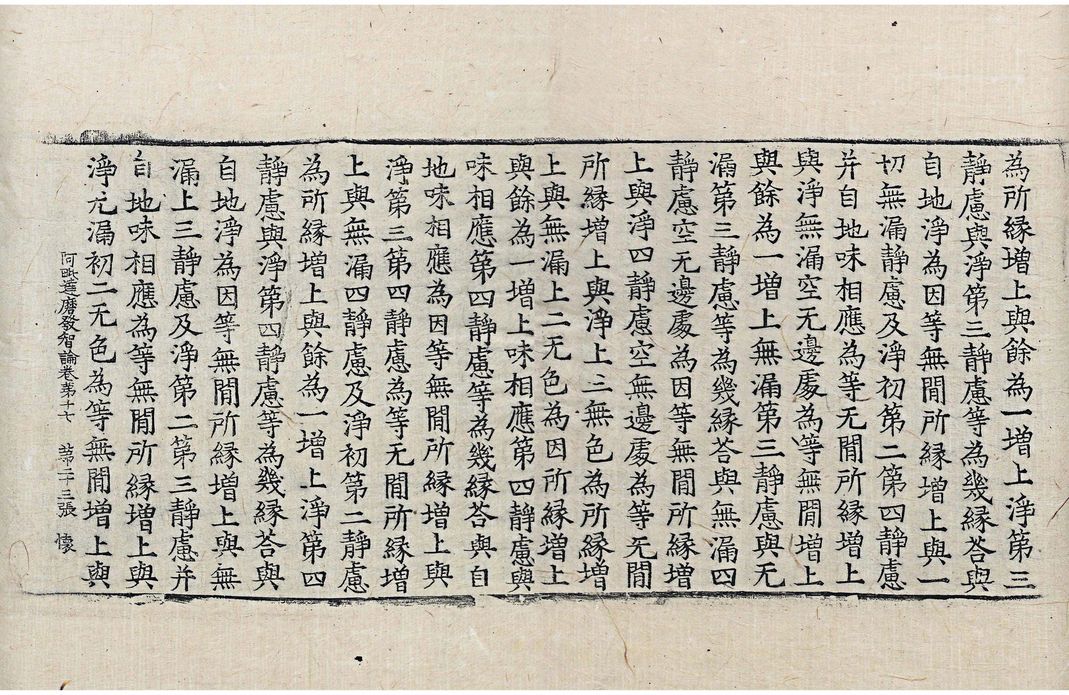 為所縁増上與餘為一増上淨第三
靜慮與淨第三靜慮等為幾縁荅與
自地淨為因等無間所縁増上與一
切無漏靜慮及淨初第二第四靜慮
并自地味相應為等无間所縁増上
與淨無漏空无邊處為等無間増上
與餘為一増上無漏第三靜慮與无
漏第三靜慮等為幾縁荅與無漏四
靜慮空无邊處為因等無間所縁増
上與淨四靜慮空無邊處為等无間
所縁増上與淨上三無色為所縁増
上與無漏上二无色為因所縁増上
與餘為一増上味相應第四靜慮與
味相應第四靜慮等為幾縁荅與自
地味相應為因等無間所縁増上與
淨第三第四靜慮為等无間所縁増
上與無漏四靜慮及淨初第二靜慮
為所縁増上與餘為一増上淨第四
靜慮與淨第四靜慮等為幾縁荅與
自地淨為因等無間所縁増上與無
漏上三靜慮及淨第二第三靜慮并
自地味相應為等無間所縁増上與
淨无漏初二无色為等無間増上與
阿毗達磨發智論卷苐十七 苐二十三張 懷